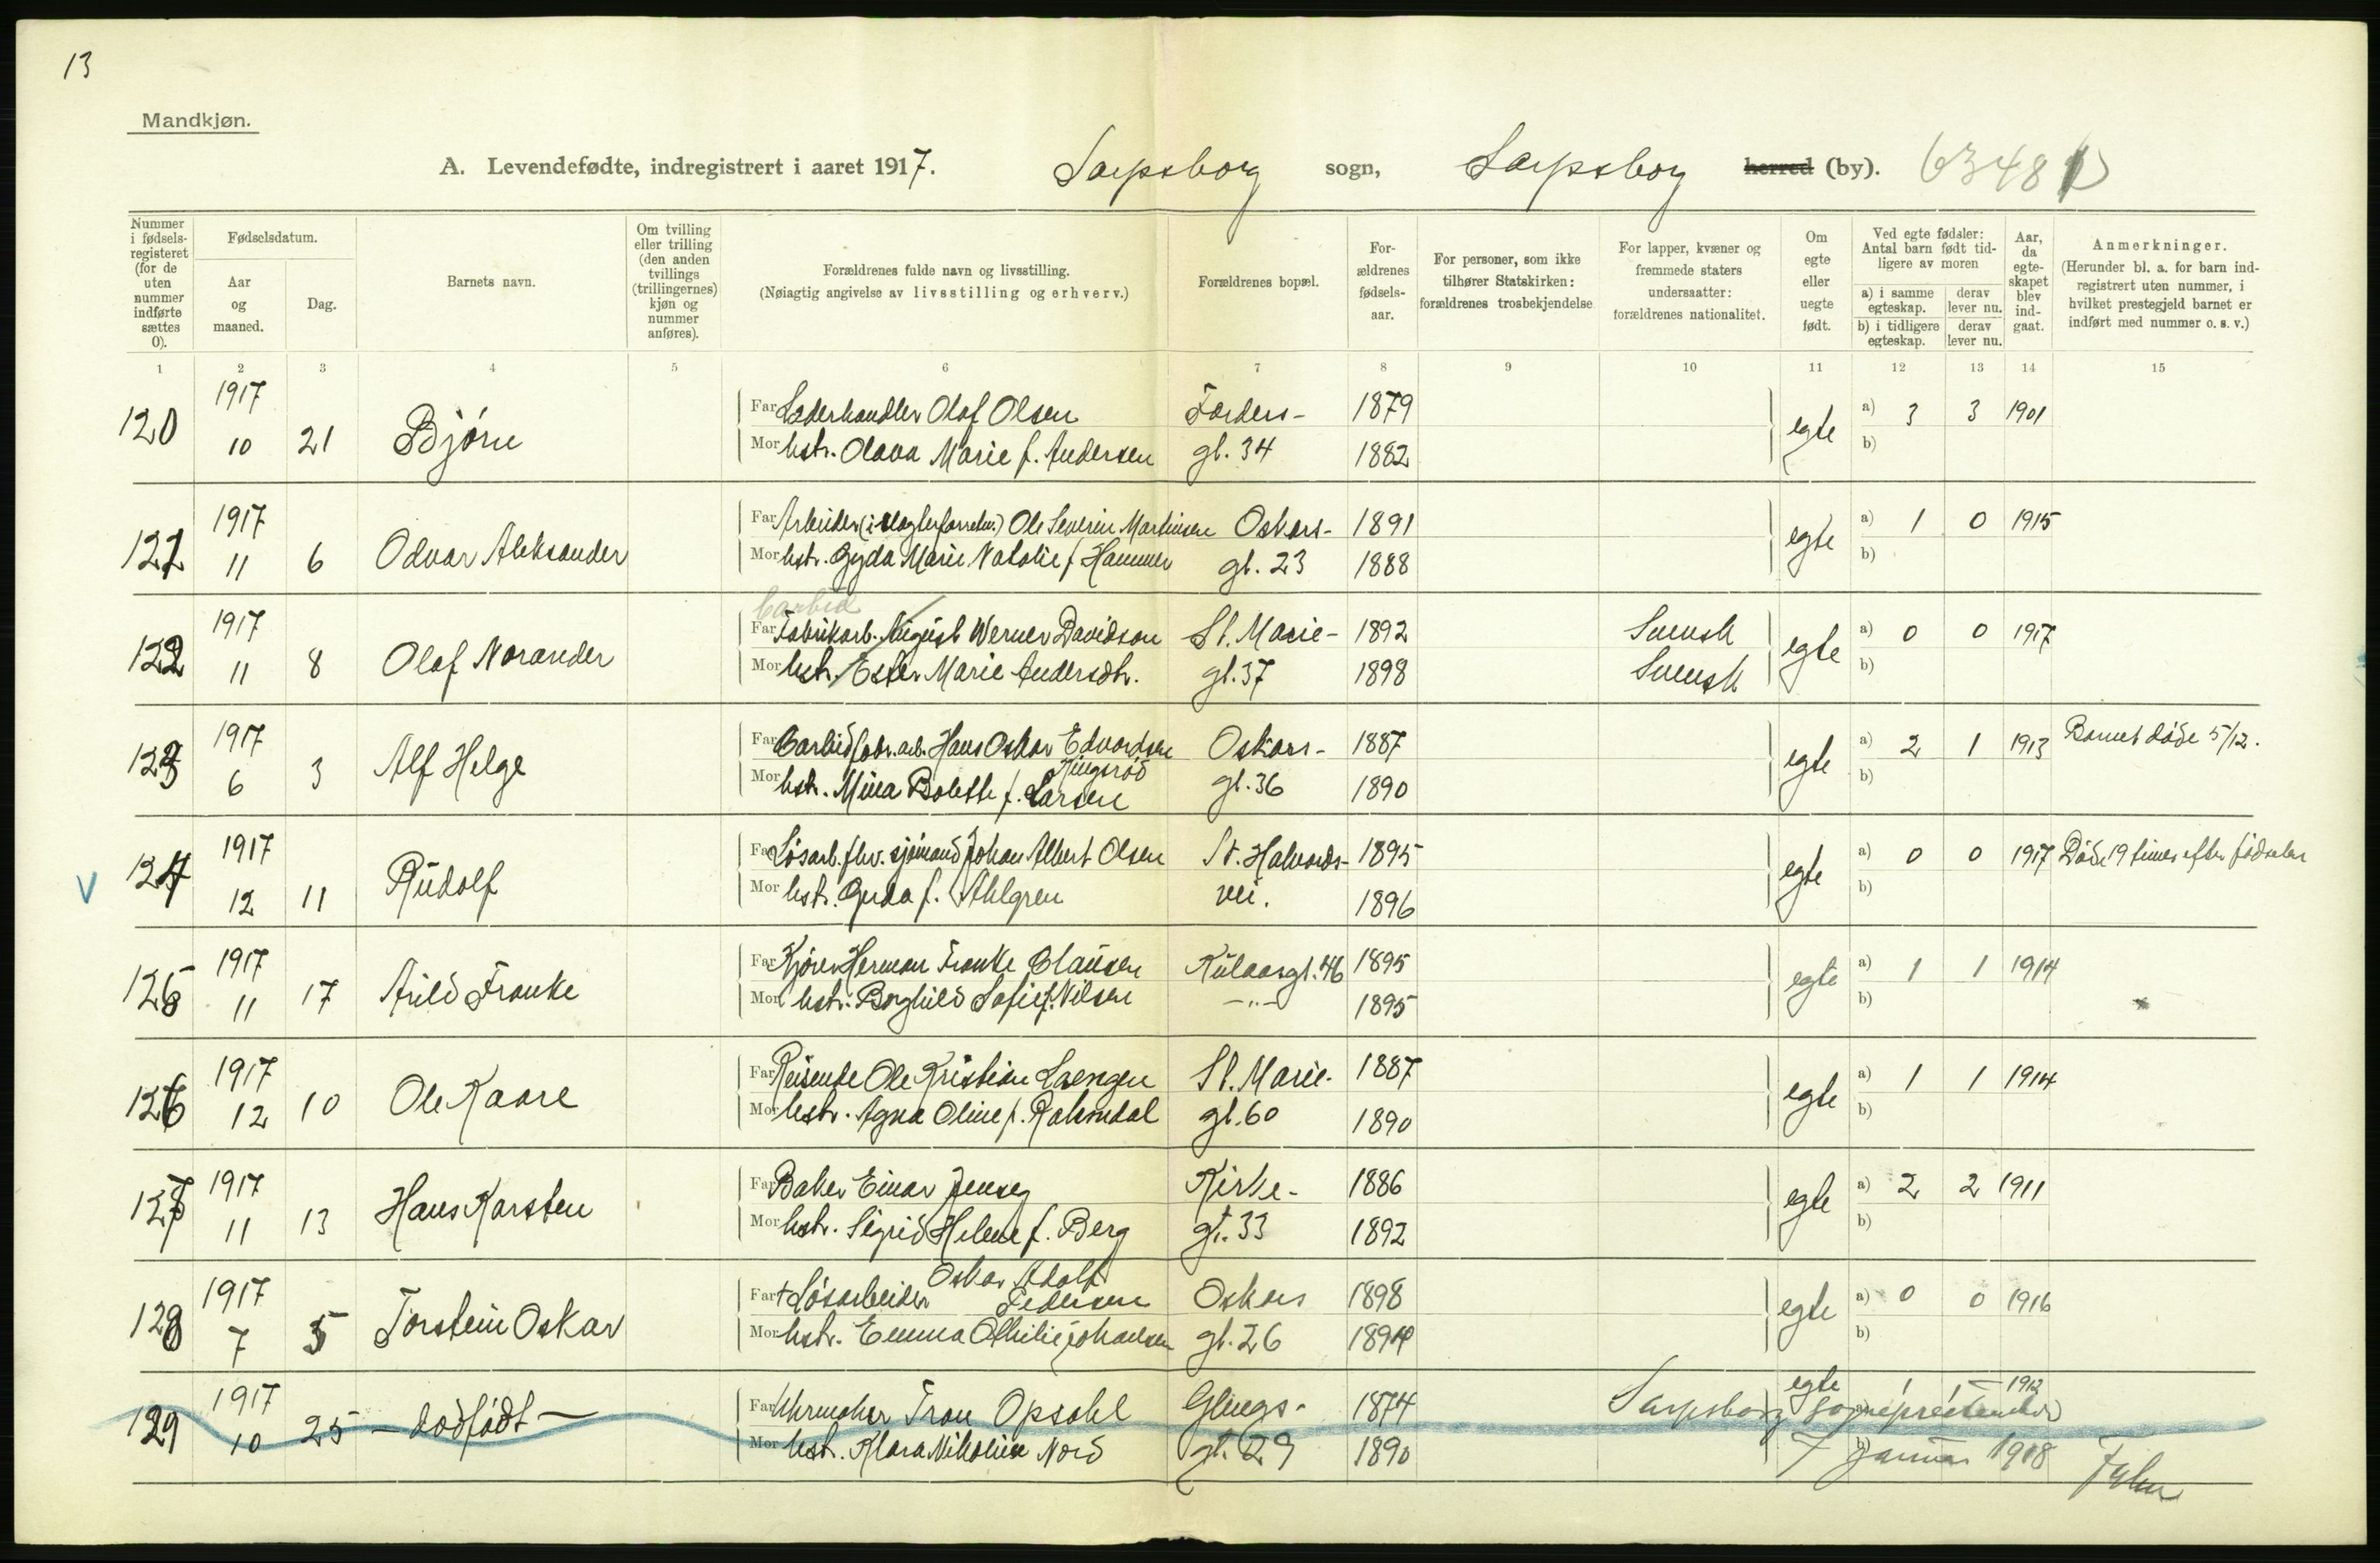 13
Mandkjøn.
A. Levendefødte, indregistrert i aaret 1917. Sarpsborg sogn, Sarpsborg herred (by).
Nummer i fødselsregisteret (for de uten nummer indførte sættes 0).
Fødselsdatum.
Aar og maaned.
Dag.
Barnets navn.
Om tvilling eller trilling (den anden tvillings (trillingernes) kjøn og nummer anføres).
Forældrenes fulde navn og livsstilling.
(Nøiagtig angivelse av livsstilling og erhverv.)
Forældrenes bopæl.
Forældrenes fødselsaar.
For personer, som ikke tilhører Statskirken: forældrenes trosbekjendelse
For lapper, kvæner og fremmede staters undersaatter: forældrenes nationalitet.
Om egte eller uegte født.
Ved egte fødsler: Antal barn født tidligere av moren
a) i samme egteskap. derav lever nu.
b) i tidligere egteskap. derav lever nu.
Aar, da egteskapet blev indgaat.
Anmerkninger.
(Herunder bl. a. for barn indregistrert uten nummer, i hvilket prestegjeld barnet er indført med nummer o. s. v.)
1 2 3 4 5 6 7 8 9 10 11 12 13 14 15
120 1917 10 21 Bjørn
Far Læderhandler Olaf Olsen Farders- 1879 egte a) 3 3 1901
Mor hstr. Olava Marie f. Andersen gt. 34 1882 b)
121 1917 11 6 Odvar Aleksander
Far Arbeider Ole Severin Martinsen Oskars- 1891 egte a) 1 0 1915
Mor hstr. Gyda Marie Natalie f. Hammer gt. 23 1888 b)
Carbid
122 1917 11 8 Olaf Narander
Far Fabrikarb. August Werner Davidson St. Marie- 1892 Svensk egte a) 0 0 1917
Mor hstr. Ester Marie Andersdtr. gt. 37 1898 Svensk b)
123 1917 6 3 Alf Helge
Far Carbidfabr.arb. Hans Oskar Edvardsen Oskars- 1887 egte a) 2 1 1913 Barnet døde 5/12.
Ringsrød
Mor hstr. Mina Bolette f. Larsen gt. 36 1890 b)
124 1917 12 11 Rudolf
Far Løsarb. fhv. sjømand Johan Albert Olsen St. Halvards- 1895 egte a) 0 0 1917 Døde 19 timer efter fødselen
Mor hstr. Gerda f. Ahlgren vei. 1896 b)
125 1917 11 17 Arild Franke
Far Kjører Herman Franke Clausen Kulaasgt. 46 1895 egte a) 1 1 1914
Mor hstr. Borghild Sofie f. Nilsen —"— 1895 b)
126 1917 12 10 Ole Kaare
Far Reisende Ole Kristian Laengen St. Marie- 1887 egte a) 1 1 1914
Mor hstr. Agna Oline f. Rakendal gt. 60 1890 b)
127 1917 11 13 Hans Karsten
Far Baker Einar Jenseg Kirke- 1886 egte a) 2 2 1911
Mor hstr. Sigrid Helene f. Berg gt. 33 1892 b)
128 1917 7 5 Torstein Oskar
Oskar Adolf
Far + Løsarbeider Pedersen Oskars 1898 egte a) 0 0 1916
Mor hstr. Emma Othilie Johansen gt. 26 1894 b)
129 1917 10 25 — dødfødt —
Far Uhrmaker Tron Opsahl Glengs- 1874 egte 1 1 1912
Sarpsborg
Mor hstr. Klara Nikoline Nord gt. 29 1890
7 Januar 1918